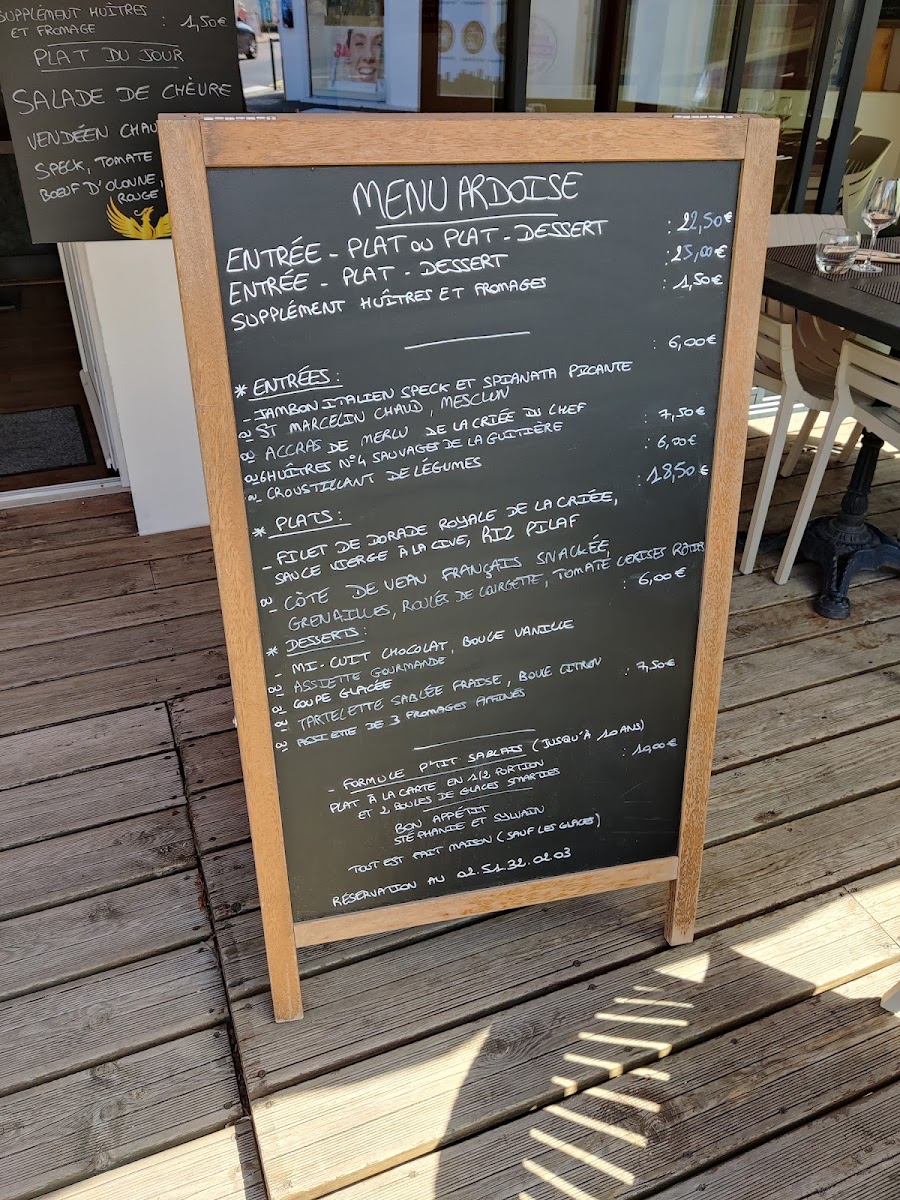 SUPPLÉMENT HUÎTRES
ET FROMAGE : 1,50€
PLAT DU JOUR
SALADE DE CHÈVRE
VENDÉEN CHAU
SPECK, TOMATE
BOEUF D'OLONNE,
ROUGE
MENU ARDOISE
ENTRÉE - PLAT OU PLAT - DESSERT : 22,50€
ENTRÉE - PLAT - DESSERT : 25,00€
SUPPLÉMENT HUÎTRES ET FROMAGES : 1,50€
* ENTRÉES : : 6,00€
- JAMBON ITALIEN SPECK ET SPIANATA PICANTE
OU ST MARCELIN CHAUD, MESCLUN
OU ACCRAS DE MERLU DE LA CRIÉE DU CHEF
OU 6 HUÎTRES N°4 SAUVAGES DE LA GUITIÈRE : 7,50€
OU CROUSTILLANT DE LÉGUMES : 6,00€
* PLATS : : 18,50€
- FILET DE DORADE ROYALE DE LA CRIÉE,
SAUCE VIERGE À LA CIVE, RIZ PILAF
OU - CÔTE DE VEAU FRANÇAIS SNACKÉE,
GRENAILLES, ROULÉS DE COURGETTE, TOMATE CERISES RÔTIES
* DESSERTS : : 6,00€
- MI-CUIT CHOCOLAT, BOULE VANILLE
OU - ASSIETTE GOURMANDE
OU - COUPE GLACÉE
OU - TARTELETTE SABLÉE FRAISE, BOULE CITRON
OU - ASSIETTE DE 3 FROMAGES AFFINÉS : 7,50€
- FORMULE P'TIT SABLAIS (JUSQU'À 10 ANS) : 10,00€
PLAT À LA CARTE EN 1/2 PORTION
ET 2 BOULES DE GLACES SMARTIES
BON APPÉTIT
STÉPHANIE ET SYLVAIN
TOUT EST FAIT MAISON (SAUF LES GLACES)
RÉSERVATION AU 02.51.32.02.03